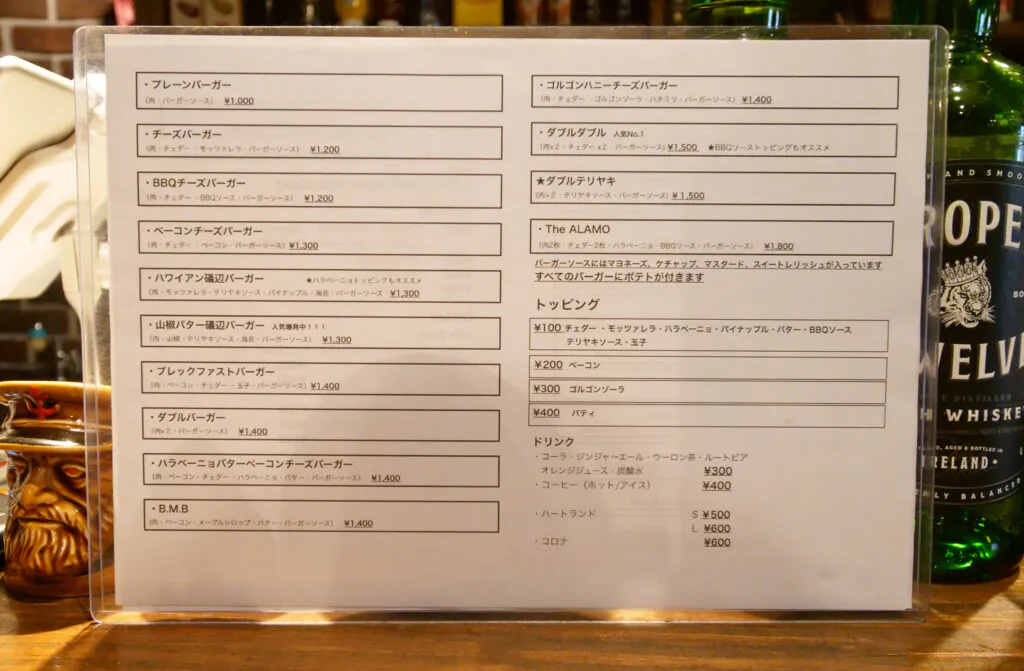 ・プレーンバーガー
（肉・バーガーソース） ¥1,000
・チーズバーガー
（肉・チェダー・モッツァレラ・バーガーソース） ¥1,200
・BBQチーズバーガー
（肉・チェダー・BBQソース・バーガーソース） ¥1,200
・ベーコンチーズバーガー
（肉・チェダー・ベーコン・バーガーソース） ¥1,300
・ハワイアン磯辺バーガー ★ハラペーニョトッピングもオススメ
（肉・モッツァレラ・テリヤキソース・パイナップル・海苔・バーガーソース ¥1,300
・山椒バター磯辺バーガー 人気爆発中！！！
（肉・山椒・テリヤキソース・海苔・バーガーソース） ¥1,300
・ブレックファストバーガー
（肉・ベーコン・チェダー・玉子・バーガーソース） ¥1,400
・ダブルバーガー
（肉×２・バーガーソース） ¥1,400
・ハラペーニョバターベーコンチーズバーガー
（肉・ベーコン・チェダー・ハラペーニョ・バター・バーガーソース） ¥1,400
・B.M.B
（肉・ベーコン・メープルシロップ・バター・バーガーソース） ¥1,400
・ゴルゴンハニーチーズバーガー
（肉・チェダー・ゴルゴンゾーラ・ハチミツ・バーガーソース） ¥1,400
・ダブルダブル 人気No.1
（肉x２・チェダー x２・バーガーソース) ¥1,500 ★BBQソーストッピングもオススメ
★ダブルテリヤキ
（肉×２・テリヤキソース・バーガーソース） ¥1,500
・The ALAMO
（肉2枚・チェダー2枚・ハラペーニョ・BBQソース・バーガーソース） ¥1,800
バーガーソースにはマヨネーズ、ケチャップ、マスタード、スイートレリッシュが入っています
すべてのバーガーにポテトが付きます
トッピング
¥100 チェダー・モッツァレラ・ハラペーニョ・パイナップル・バター・BBQソース
テリヤキソース・玉子
¥200 ベーコン
¥300 ゴルゴンゾーラ
¥400 パティ
ドリンク
・コーラ・ジンジャーエール・ウーロン茶・ルートビア
オレンジジュース・炭酸水 ¥300
・コーヒー（ホット/アイス） ¥400
・ハートランド S ¥500
L ¥600
・コロナ ¥600
AND SMOO
ROPE
WELVE
DISTILLED
WHISKEY
AGED & BOTTLED IN
IRELAND
BALANCED